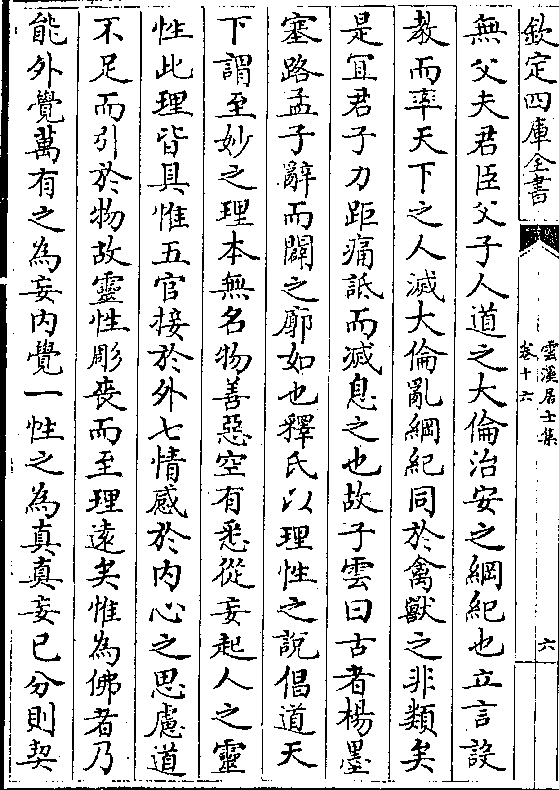 欽定四庫全書
雲溪居士集
卷十六
六
無父夫君臣父子人道之大倫治安之綱紀也立言設
教而率天下之人滅大倫亂綱紀同於禽獸之非類矣
是宜君子力距痛詆而滅息之也故子雲曰古者楊墨
塞路孟子辭而闢之廓如也釋氏以理性之說倡道天
下謂至妙之理本無名物善惡空有悉從妄起人之靈
性此理皆具惟五官接於外七情感於内心之思慮道
不足而引於物故靈性彫喪而至理逺矣惟為佛者乃
能外覺萬有之為妄内覺一性之為真真妄已分則契